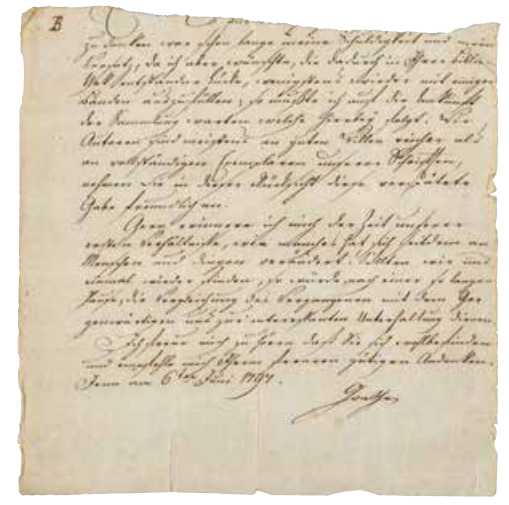 B
zu danken war schon lange meine Schuldigkeit und mein
Vorsatz, da ich aber wünschte, die dadurch in Ihrer biblio
entstandene Lücke, wenigstens wieder mit einigen
Bänden auszufüllen; so mußte ich auf die Ankunft
der Sammlung warten welche hierbey folgt. Die
Autoren sind meistens an guten Willen reicher als
an vollständigen Exemplaren unserer Schriften,
nehmen Sie in dieser Rücksicht diese verspätete
Gabe freundlich an.
Gern erinnere ich mich der Zeit unserer
ersten Verhältnisse, wie manches hat sich seitdem an
Menschen und Dingen verändert. Sollten wir uns
einmal wieder finden, so würde, nach einer so langen
Pause, die Vergleichung des Vergangenen mit dem Ge
genwärtigen uns zur interessanten Unterhaltung dienen.
Ich freue mich zu hören daß Sie sich wohlbefinden
und empfehle mich Ihrem ferneren gütigen Andenken.
Jena am 6ten Juni 1797.
Goethe